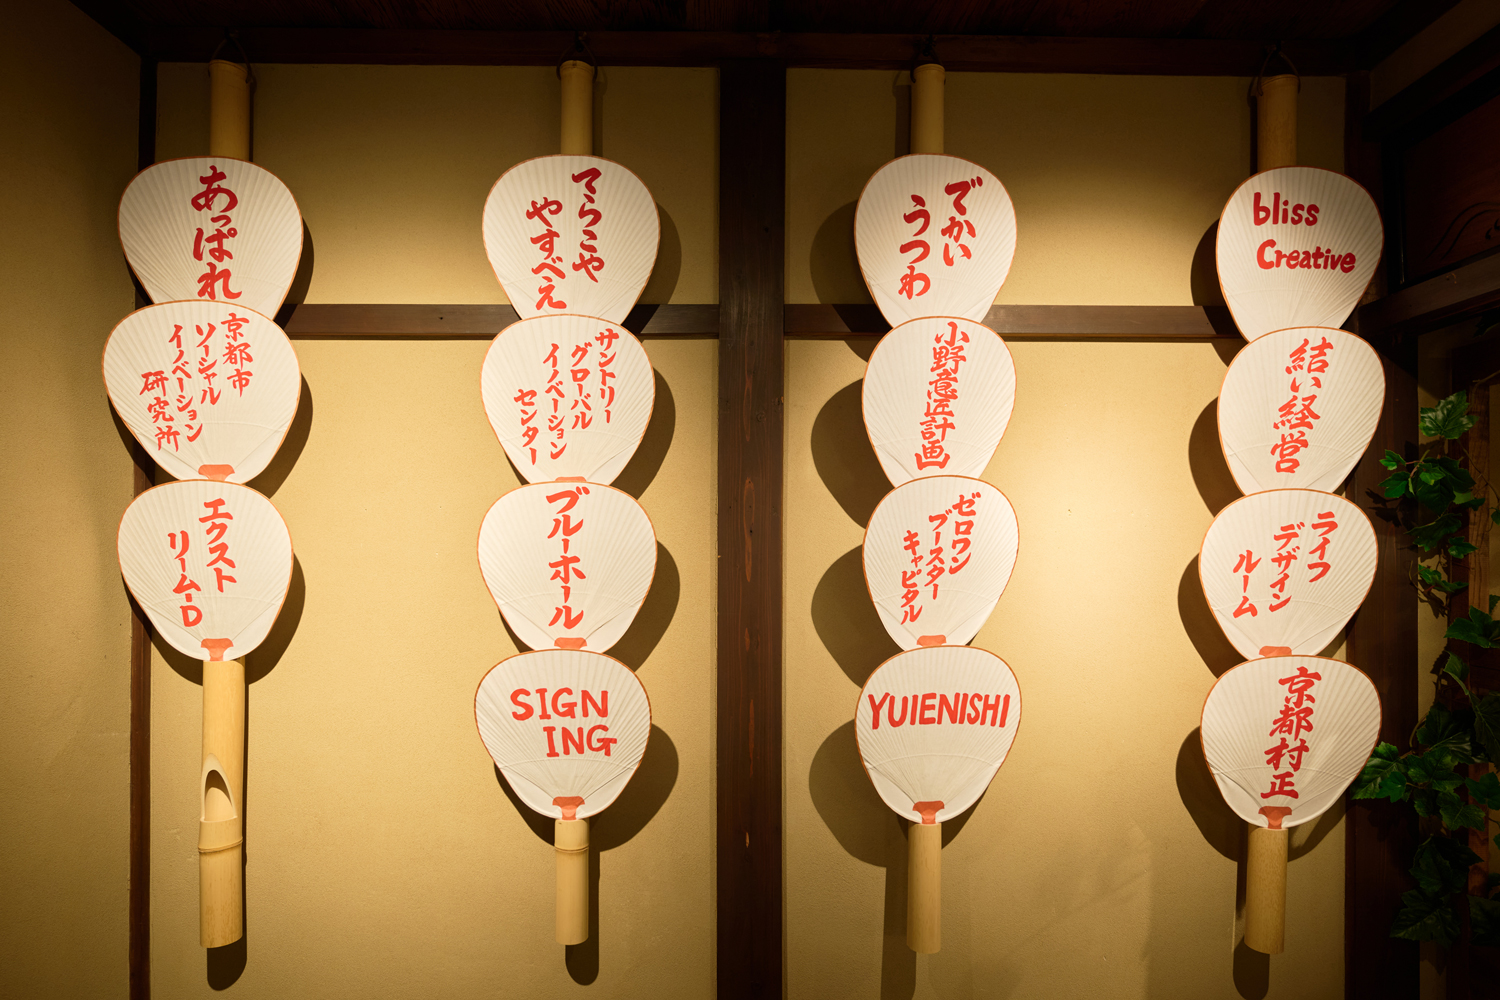 あっぱれ
京都市
ソーシャル
イノベーション
研究所
エクスト
リームーD
てらこや
やすべえ
サントリー
グローバル
イノベーション
センター
ブルーホール
SIGN
ING
でかい
うつわ
小野意匠計画
ゼロワン
ブースター
キャピタル
YUIENISHI
bliss
Creative
結い経営
ライフ
デザイン
ルーム
京都村正